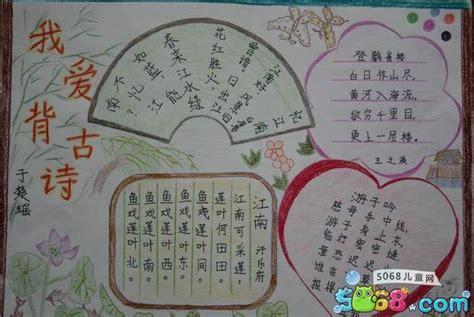 我爱背古诗
江南好
花红胜火,
春来江水绿
登鹳雀楼
白日依山尽,
黄河入海流。
欲穷千里目,
更上一层楼。
王之涣
江南 汉乐府
江南可采莲,
莲叶何田田。
鱼戏莲叶间。
鱼戏莲叶东,
鱼戏莲叶西,
鱼戏莲叶南,
鱼戏莲叶北。
游子吟
慈母手中线,
游子身上衣。
临行密密缝,
意恐迟迟
谁言
报得
5068儿童网
5068.com